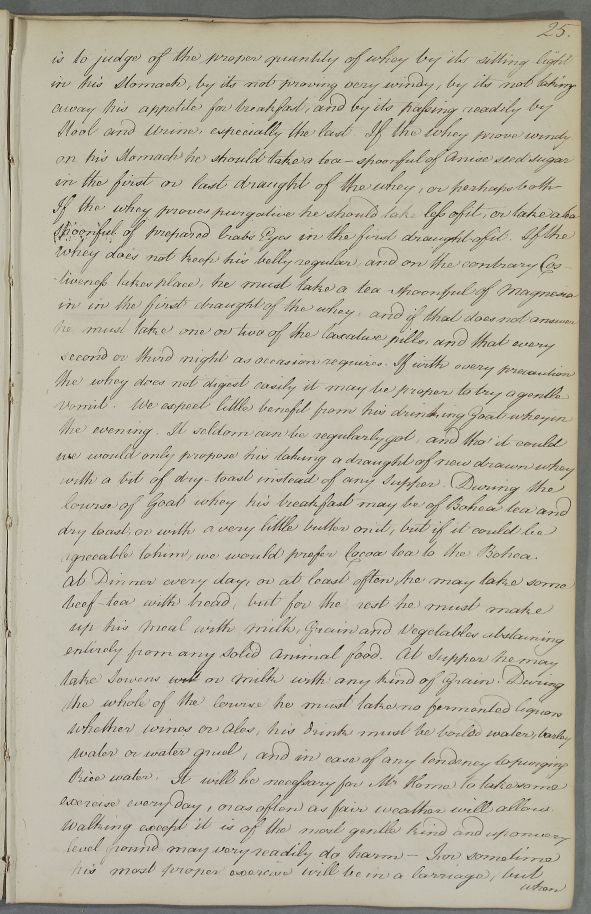 25.
is to judge of the proper quantity of whey by its sitting light
in his Stomach, by its not proving very windy, by its not taking
away his appetite for breakfast, and by its passing readily by
Stool and Urine, especially the last. If the Whey prove windy
on his Stomach he should take a tea-spoonful of Anise seed sugar
in the first or last draught of the whey, or perhaps both
If the whey proves purgative he should take less of it, or take a tea
spoonful of prepared Crabs Eyes in the first draught of it. If the
whey does not keep his belly regular, and on the contrary Cos-
-tiveness takes place, he must take a tea spoonful of Magnesia
in in the first draught of the whey, and if that does not answer
he must take one or two of the laxative pills, and that every
second or third night as occasion requires. If with every precaution
the whey does not digest easily it may be proper to try a gentle
vomit. We expect little benefit from his drinking Goat whey in
the evening. It seldom can be regularly got, and tho' it could
we would only propose his taking a draught of new drawn whey
with a bit of dry-toast instead of any Supper. During the
Course of Goat whey his breakfast may be of Bohea tea and
dry toast, or with a very little butter on it, but if it could be
agreeable to him, we would prefer Cocoa tea to the Bohea.
At Dinner every day, or at least often, he may take some
beef-tea with bread, but for the rest he must make
up his meal with milk, Grain and Vegetables abstaining
entirely from any solid animal food. At Supper he may
take Sowens or milk with any kind of Grain. During
the whole of the Course he must take no fermented liquors
whether wines or ales, his drink must be boild water, barley
water or water gruel, and in case of any tendency to purging
Rice water. It will be necessary for Mr Home to take some
exercise every day, or as often as fair weather will allow.
Walking except it is of the most gentle kind and upon very
level ground may very readily do harm – For sometime
his most proper exercise will be in a Carriage, but
when